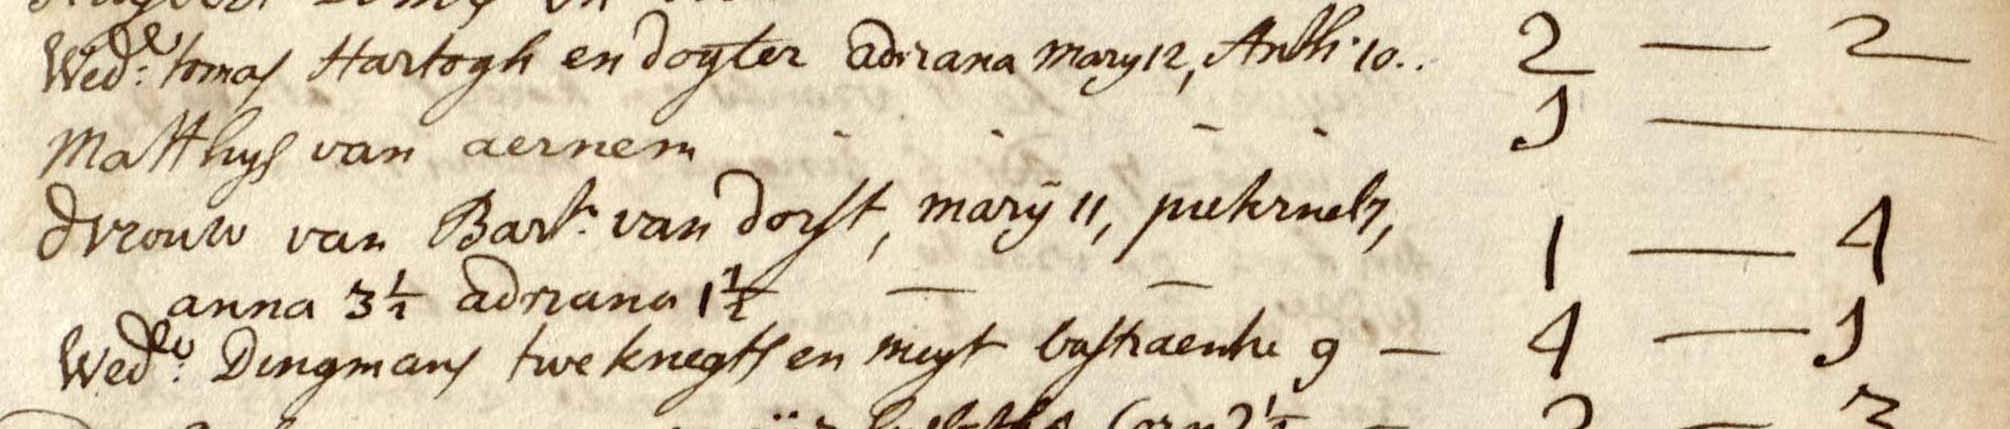 Wed:e tomas Hartogh en dogter adriana mary 12, Anth: 10.. 2 — 2
Matthys van aernem - - - - 1 —
d vrouw van Bart: van dorst, marÿ 11, piekrnel 7, 1 — 4
anna 3½ adriana 1½ — —
Wed:e Dingmans twe knegts en meyt bastiaentie 9 — 4 — 1